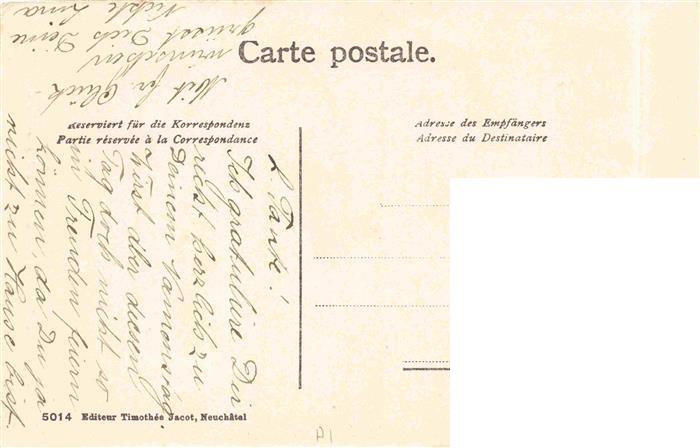 Carte postale.
Reserviert für die Korrespondenz
Partie réservée à la Correspondance
Adresse des Empfängers
Adresse du Destinataire
L. Tante!
Ich gratuliere Dir
recht herzlich zu
Deinem Namenstag
Wirst aber diesen
Tag doch nicht so
in Freuden feiern
können, da Du ja
nicht zu Hause bist.
Mit fr. Glück-
wünschen
grüsst Dich Deine
Nichte
5014 Editeur Timothée Jacot, Neuchâtel
P1